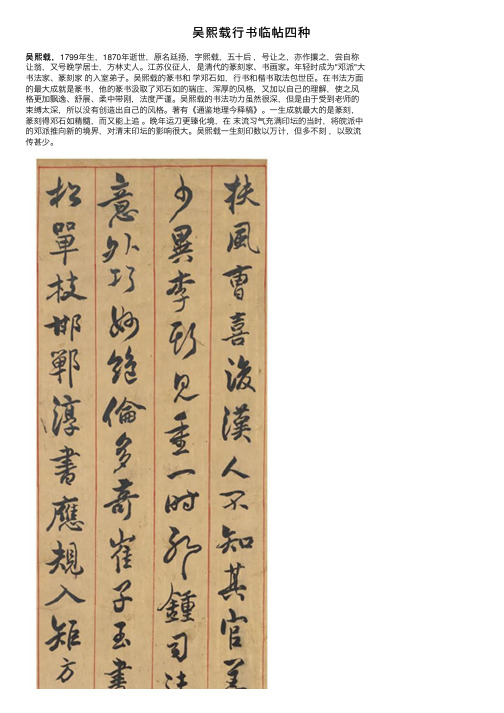 吴熙载行书临帖四种
吴熙载，1799年生，1870年逝世，原名廷扬，字熙载，五十后 ，号让之，亦作攘之，尝自称
让翁，又号晚学居士、方林丈人。江苏仪征人，是清代的篆刻家、书画家。年轻时成为"邓派"大
书法家、篆刻家 的入室弟子。吴熙载的篆书和 学邓石如，行书和楷书取法包世臣。在书法方面
的最大成就是篆书，他的篆书汲取了邓石如的端庄、浑厚的风格，又加以自己的理解，使之风
格更加飘逸、舒展、柔中带刚，法度严谨。吴熙载的书法功力虽然很深，但是由于受到老师的
束缚太深，所以没有创造出自己的风格。著有《通鉴地理今释稿》。一生成就最大的是篆刻，
篆刻得邓石如精髓，而又能上追 。晚年运刀更臻化境，在 末流习气充满印坛的当时，将皖派中
的邓派推向新的境界，对清末印坛的影响很大。吴熙载一生刻印数以万计，但多不刻 ，以致流
传甚少。
扶風曹喜後漢人不知其官善
少異李斯見重一时鍾司法
意外巧妙絶倫多奇崔子玉書
松單枝邯鄲淳書應規入矩方